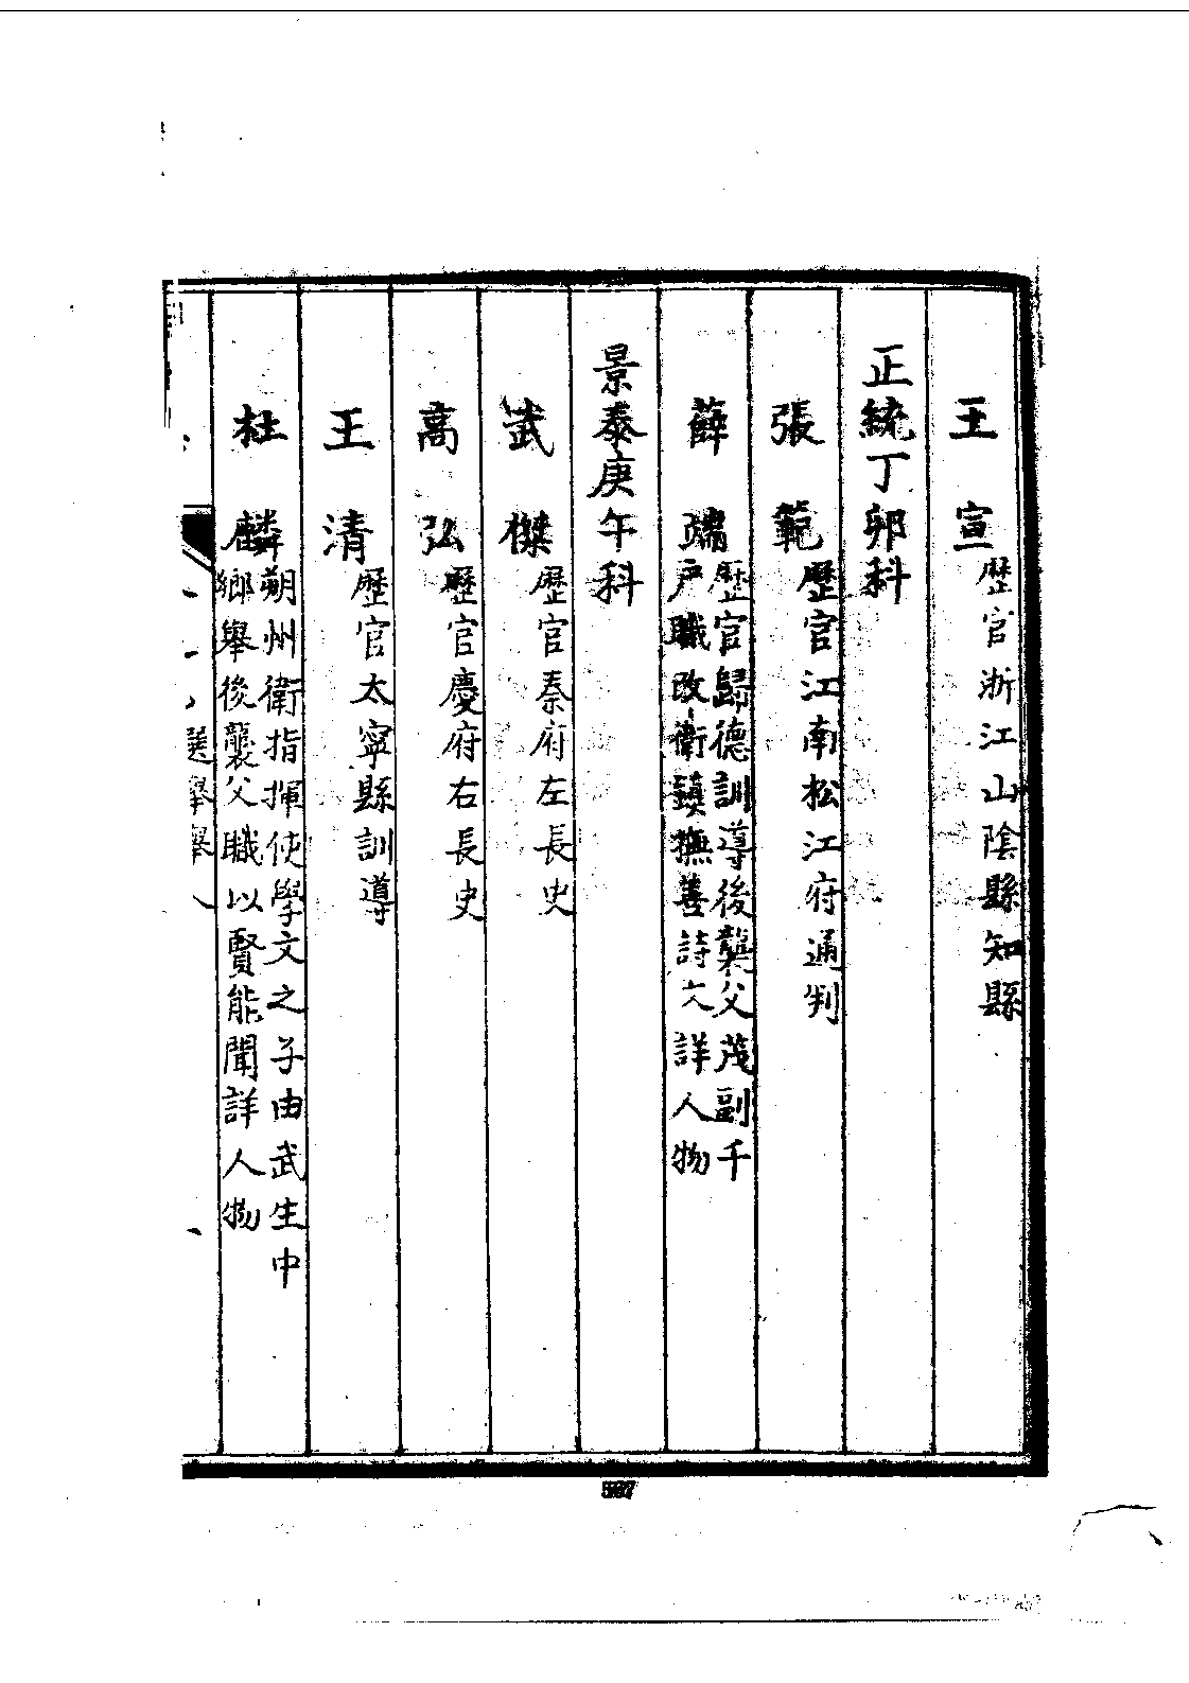 王宣 歴官浙江山陰縣知縣
正統丁卯科
張範 歷官江南松江府通判
薛 歷官歸德訓導後襲父茂副千
戸職改衛鎮撫善詩文詳人物
景泰庚午科
武傑 歷官秦府左長史
高弘 歷官慶府右長史
王清 歷官太寧縣訓導
杜麟 朔州衛指揮使學文之子由武生中
鄉舉後襲父職以賢能聞詳人物
選舉舉人
567